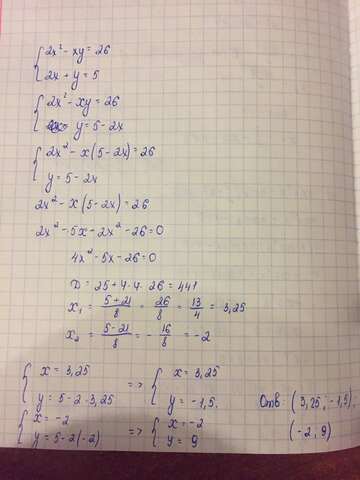 { 2x² - xy = 26
2x + y = 5
{ 2x² - xy = 26
y = 5 - 2x
{ 2x² - x(5 - 2x) = 26
y = 5 - 2x
2x² - x(5 - 2x) = 26
2x² - 5x + 2x² - 26 = 0
4x² - 5x - 26 = 0
D = 25 + 4·4·26 = 441
x₁ = (5+21)/8 = 26/8 = 13/4 = 3,25
x₂ = (5-21)/8 = - 16/8 = -2
{ x = 3,25 => { x = 3,25
y = 5 - 2·3,25 y = -1,5. Отв: (3,25; -1,5).
{ x = -2 => { x = -2 (-2, 9)
y = 5 - 2(-2) y = 9